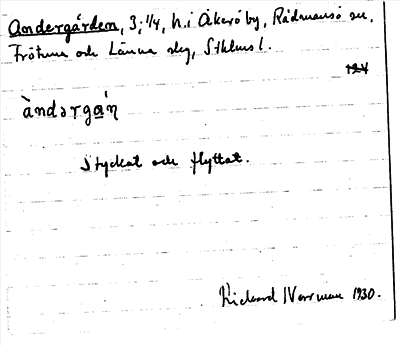 Andergården, 3; 1/4, h. i Åkerö by, Rådmansö sn,
Frötuna och Länna slg, Sthlms l.
124
àndərgáṇ
Styckat och flyttat.
Rickard Norrman 1930.